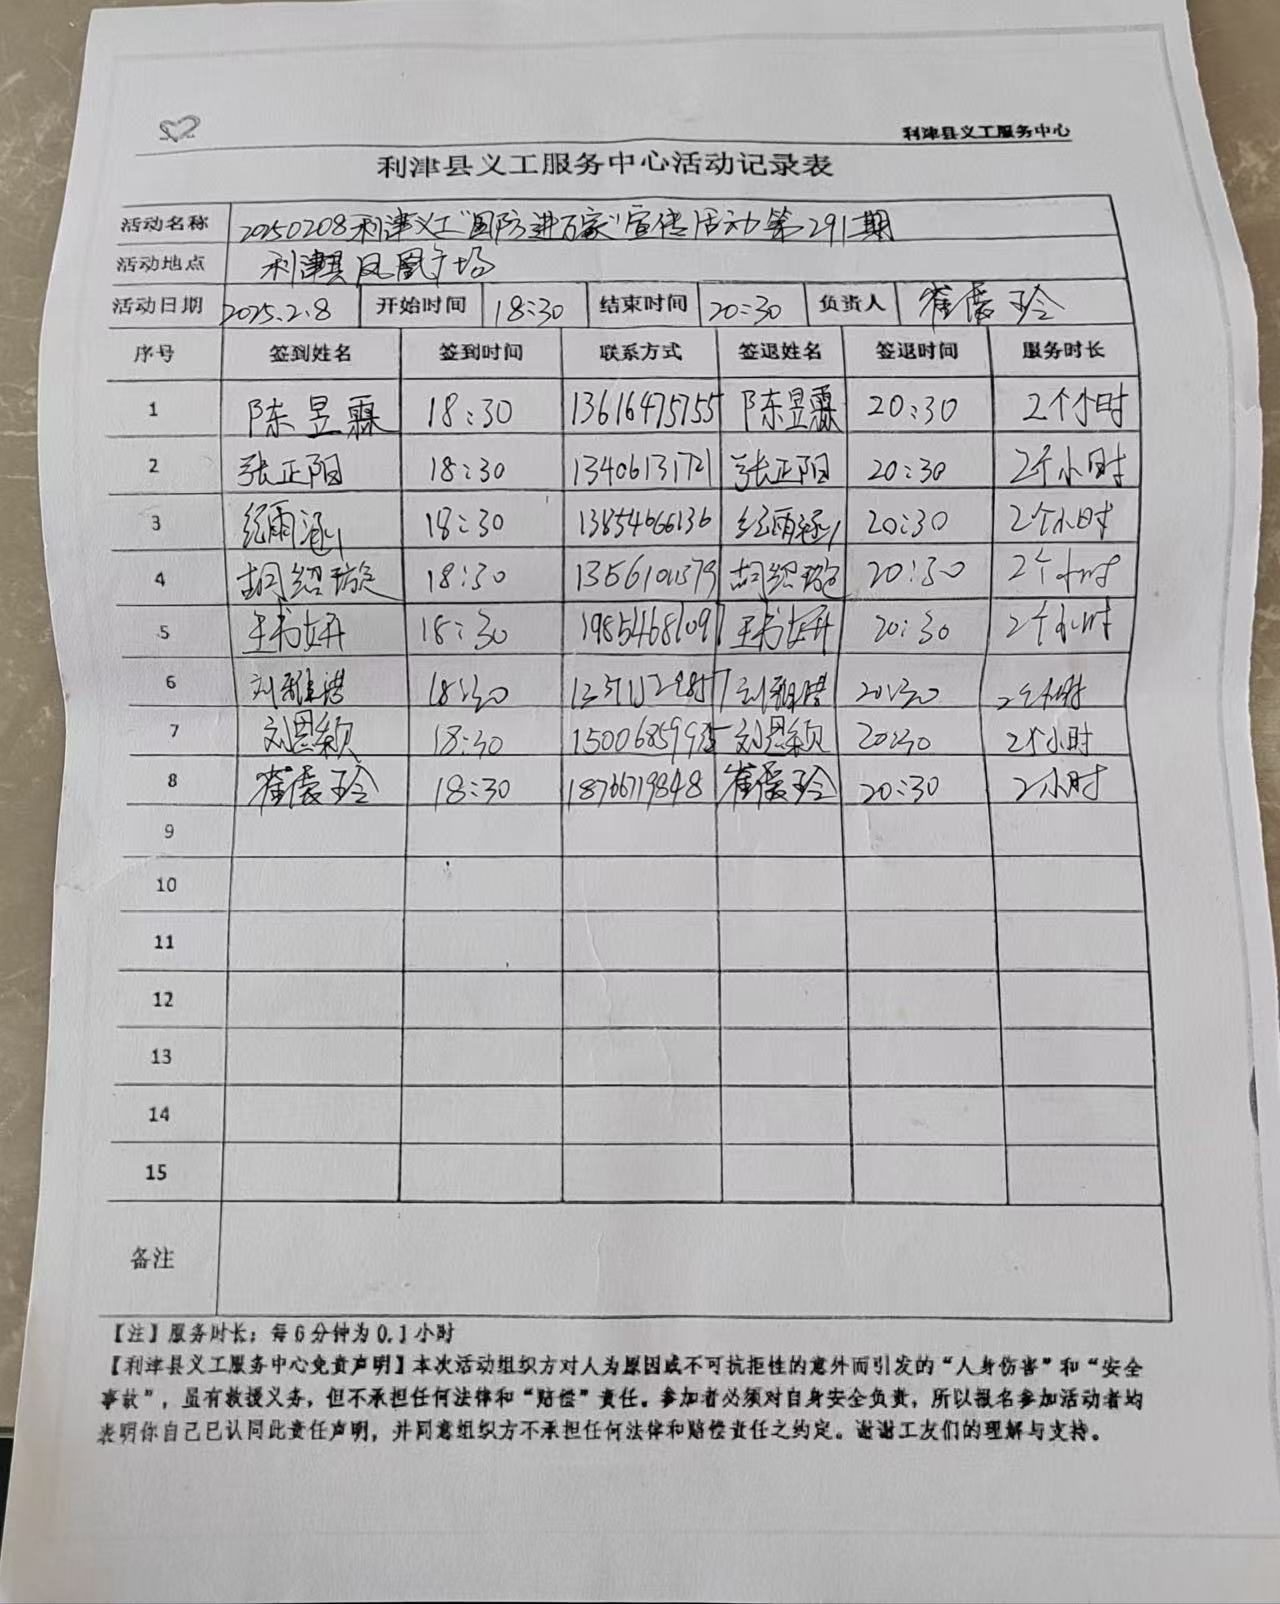 利津县义工服务中心
利津县义工服务中心活动记录表
活动名称 20250208利津义工“国防进万家”宣传活动第291期
活动地点 利津县凤凰广场
活动日期 2025.2.8 开始时间 18:30 结束时间 20:30 负责人 崔爱玲
序号 签到姓名 签到时间 联系方式 签退姓名 签退时间 服务时长
1 陈昱霖 18:30 13616475755 陈昱霖 20:30 2个小时
2 张正阳 18:30 13406131721 张正阳 20:30 2个小时
3 纪雨涵 18:30 13854666136 纪雨涵 20:30 2个小时
4 胡绍璇 18:30 胡绍璇 20:30 2个小时
5 王书妍 18:30 王书妍 20:30 2个小时
6 18:30 20:30 2个小时
7 刘恩颖 18:30 刘恩颖 20:30 2个小时
8 崔爱玲 18:30 18766719848 崔爱玲 20:30 2小时
9
10
11
12
13
14
15
备注
【注】服务时长：每6分钟为0.1小时
【利津县义工服务中心免责声明】本次活动组织方对人为原因或不可抗拒性的意外而引发的“人身伤害”和“安全
事故”，虽有救援义务，但不承担任何法律和“赔偿”责任。参加者必须对自身安全负责，所以报名参加活动者均
表明你自己已认同此责任声明，并同意组织方不承担任何法律和赔偿责任之约定。谢谢工友们的理解与支持。